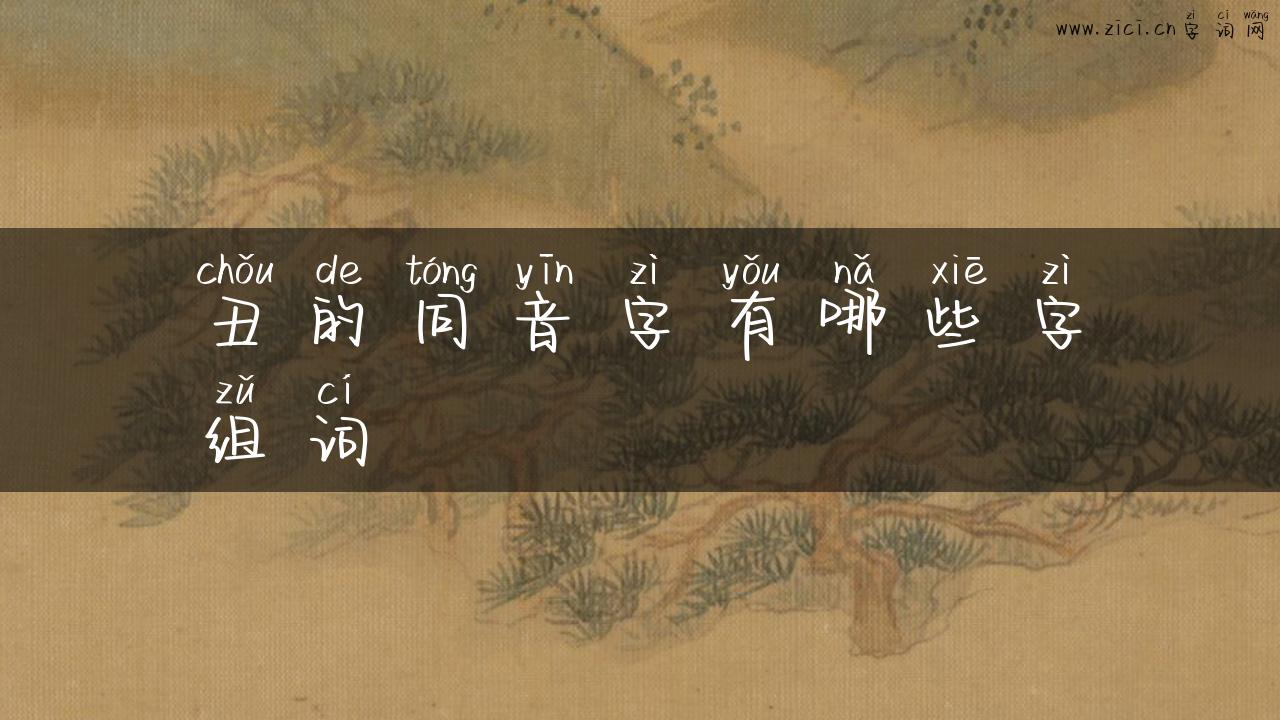 zì cí wǎng
www.zici.cn 字词网
chǒu de tóng yīn zì yǒu nǎ xiē zì
丑的同音字有哪些字
zǔ cí
组词